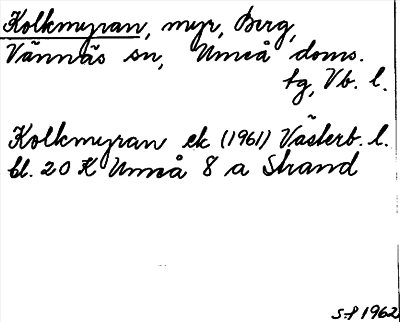 Kolkmyran, myr, Berg,
Vännäs sn, Umeå doms.
tg, Vb. l.
Kolkmyran ek (1961) Västerb. l.
bl. 20 K Umeå 8 a Strand
S-f 1962